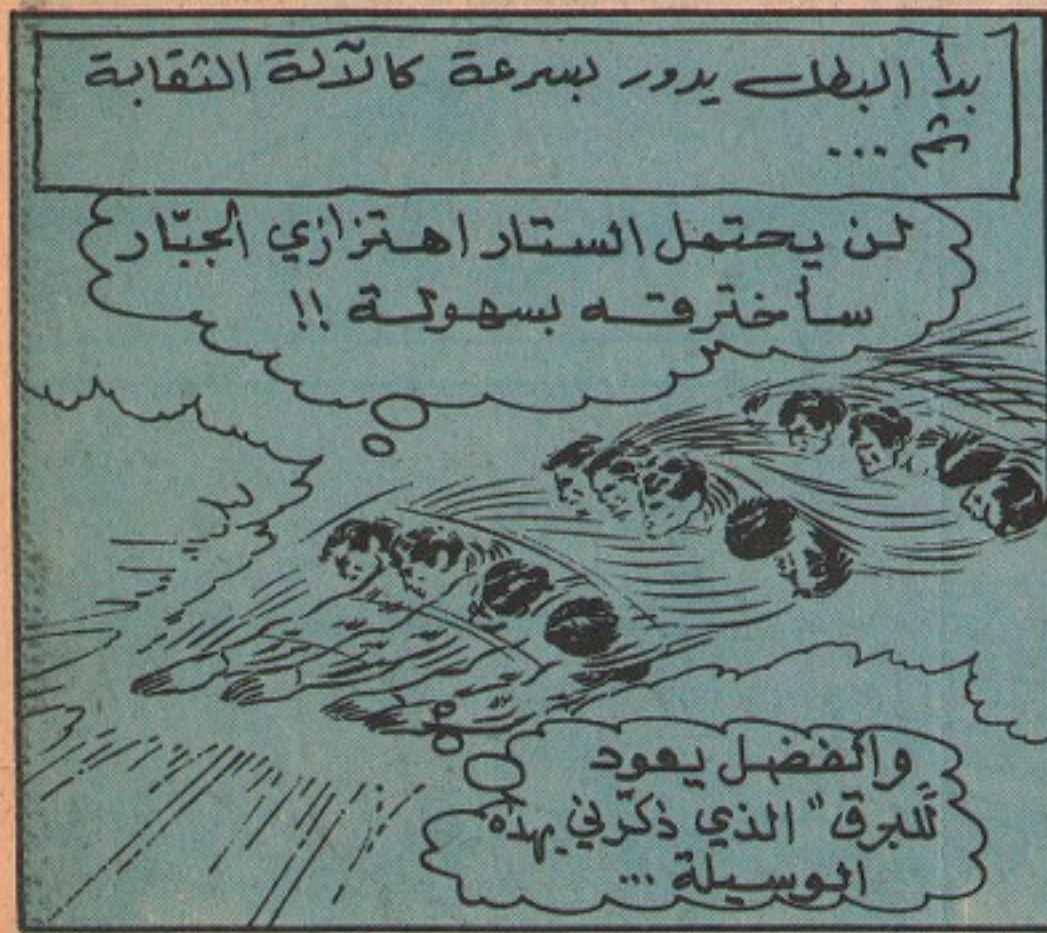 بدأ البطل يدور بسرعة كالآلة الثقابة
ثم ...
لن يحتمل الستار اهتزازي الجبّار
سأخترقه بسهولة !!
والفضل يعود
"للبرق" الذي ذكّرني بهذه
الوسيلة ...